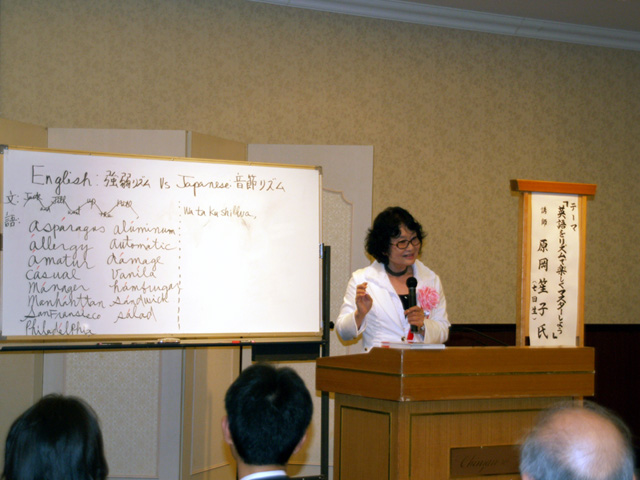 English: 強弱リズム Vs Japanese: 音節リズム
文
語:
wa ta ku shi wa
aspáragas alúminum
állergy automátic
amatur dámage
cásual vanílla
mánager hámburgas
Manháttan sándwick
SanFransisco sálad
Philadélphia
テーマ
「英語をリズムで楽しくマスターしよう」
講師 原岡笙子氏